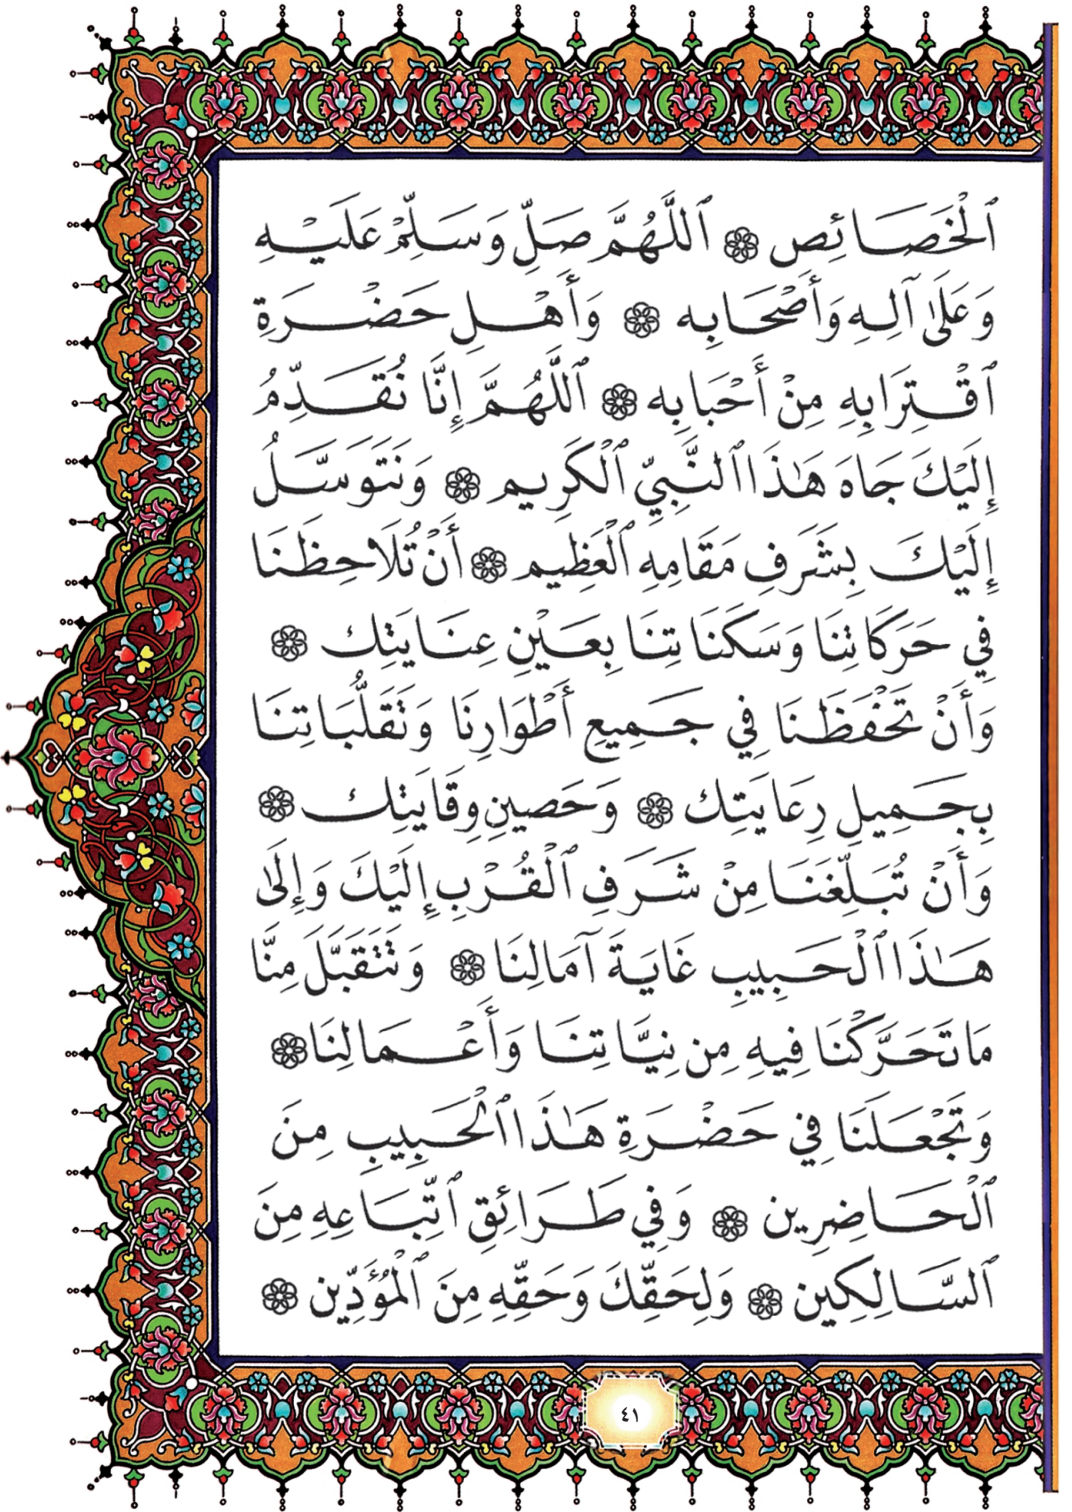 ٱلْخَصَائِص ۞ ٱللَّهُمَّ صَلِّ وَسَلِّمْ عَلَيْهِ
وَعَلَىٰ آلِهِ وَأَصْحَابِه ۞ وَأَهْلِ حَضْرَةِ
ٱقْتِرَابِهِ مِنْ أَحْبَابِه ۞ ٱللَّهُمَّ إِنَّا نُقَدِّمُ
إِلَيْكَ جَاهَ هَـٰذَا ٱلنَّبِيِّ ٱلْكَرِيم ۞ وَنَتَوَسَّلُ
إِلَيْكَ بِشَرَفِ مَقَامِهِ ٱلْعَظِيم ۞ أَنْ تُلَاحِظَنَا
فِي حَرَكَاتِنَا وَسَكَنَاتِنَا بِعَيْنِ عِنَايَتِك ۞
وَأَنْ تَحْفَظَنَا فِي جَمِيعِ أَطْوَارِنَا وَتَقَلُّبَاتِنَا
بِجَمِيلِ رِعَايَتِك ۞ وَحَصِينِ وِقَايَتِك ۞
وَأَنْ تُبَلِّغَنَا مِنْ شَرَفِ ٱلْقُرْبِ إِلَيْكَ وَإِلَىٰ
هَـٰذَا ٱلْحَبِيبِ غَايَةَ آمَالِنَا ۞ وَتَتَقَبَّلَ مِنَّا
مَا تَحَرَّكْنَا فِيهِ مِن نِيَّاتِنَا وَأَعْمَالِنَا ۞
وَتَجْعَلَنَا فِي حَضْرَةِ هَـٰذَا ٱلْحَبِيبِ مِنَ
ٱلْحَاضِرِين ۞ وَفِي طَرَائِقِ ٱتِّبَاعِهِ مِنَ
ٱلسَّالِكِين ۞ وَلِحَقِّكَ وَحَقِّهِ مِنَ ٱلْمُؤَدِّين ۞
٤١